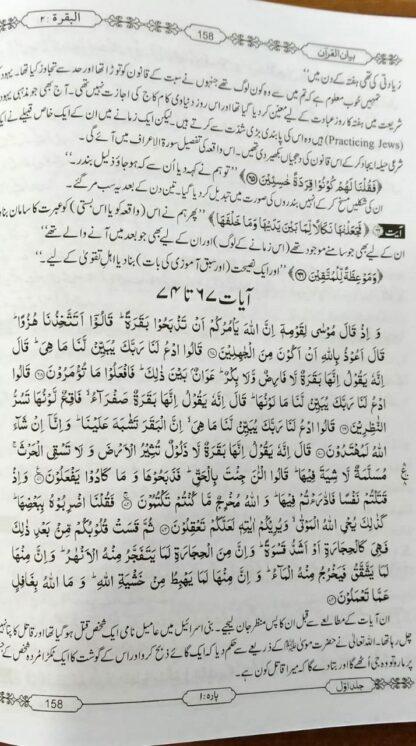 البقرة : ۲
158
بیان القرآن
زیادتی کی تھی ہفتہ کے دن میں‘‘
تمہیں خوب معلوم ہے کہ تم میں سے وہ کون لوگ تھے جنہوں نے سبت کے قانون کو توڑا تھا اور حد سے تجاوز کیا تھا۔ یہود
شریعت میں ہفتہ کا روز عبادت کے لیے معین کر دیا گیا تھا اور اس روز دنیاوی کام کاج کی اجازت نہیں تھی۔ آج بھی جو مذہبی یہود
(Practicing Jews) ہیں وہ اس کی پابندی بڑی شدت سے کرتے ہیں۔ لیکن ایک زمانے میں ان کے ایک خاص قبیلے نے ایک
شرعی حیلہ ایجاد کر کے اس قانون کی دھجیاں بکھیر دی تھیں۔ اس واقعہ کی تفصیل سورۃ الاعراف میں آئے گی۔
﴿فَقُلْنَا لَهُمْ كُوْنُوْا قِرَدَةً خٰسِـِٕيْنَ ۝۶۵﴾ ’’تو ہم نے کہہ دیا اُن سے کہ ہو جاؤ ذلیل بندر۔‘‘
ان کی شکلیں مسخ کر کے انہیں بندروں کی صورت میں تبدیل کر دیا گیا۔ تین دن کے بعد یہ سب مر گئے۔
آیت ۶۶ ﴿فَجَعَلْنٰهَا نَكَالًا لِّمَا بَيْنَ يَدَيْهَا وَمَا خَلْفَهَا﴾ ’’پھر ہم نے اس (واقعہ کو یا اس بستی) کو عبرت کا سامان بنا دیا
ان کے لیے بھی جو سامنے موجود تھے (اس زمانے کے لوگ) اور ان کے لیے بھی جو بعد میں آنے والے تھے‘‘
﴿وَمَوْعِظَةً لِّلْمُتَّقِيْنَ ۝۶۶﴾ ’’اور ایک نصیحت (اور سبق آموزی کی بات) بنا دیا اہلِ تقویٰ کے لیے۔‘‘
آیات ۶۷ تا ۷۴
وَ اِذْ قَالَ مُوْسٰى لِقَوْمِهٖۤ اِنَّ اللّٰهَ يَاْمُرُكُمْ اَنْ تَذْبَحُوْا بَقَرَةً ؕ قَالُوْۤا اَتَتَّخِذُنَا هُزُوًا ؕ
قَالَ اَعُوْذُ بِاللّٰهِ اَنْ اَكُوْنَ مِنَ الْجٰهِلِيْنَ ۝۶۷ قَالُوا ادْعُ لَنَا رَبَّكَ يُبَيِّنْ لَّنَا مَا هِيَ ؕ قَالَ
اِنَّهٗ يَقُوْلُ اِنَّهَا بَقَرَةٌ لَّا فَارِضٌ وَّلَا بِكْرٌ ؕ عَوَانٌۢ بَيْنَ ذٰلِكَ ؕ فَافْعَلُوْا مَا تُؤْمَرُوْنَ ۝۶۸ قَالُوا
ادْعُ لَنَا رَبَّكَ يُبَيِّنْ لَّنَا مَا لَوْنُهَا ؕ قَالَ اِنَّهٗ يَقُوْلُ اِنَّهَا بَقَرَةٌ صَفْرَآءُ ۙ فَاقِعٌ لَّوْنُهَا تَسُرُّ
النّٰظِرِيْنَ ۝۶۹ قَالُوا ادْعُ لَنَا رَبَّكَ يُبَيِّنْ لَّنَا مَا هِيَ ۙ اِنَّ الْبَقَرَ تَشٰبَهَ عَلَيْنَا ؕ وَ اِنَّاۤ اِنْ شَآءَ
اللّٰهُ لَمُهْتَدُوْنَ ۝۷۰ قَالَ اِنَّهٗ يَقُوْلُ اِنَّهَا بَقَرَةٌ لَّا ذَلُوْلٌ تُثِيْرُ الْاَرْضَ وَ لَا تَسْقِى الْحَرْثَ ۚ
مُسَلَّمَةٌ لَّا شِيَةَ فِيْهَا ؕ قَالُوا الْـٰٔنَ جِئْتَ بِالْحَقِّ ؕ فَذَبَحُوْهَا وَ مَا كَادُوْا يَفْعَلُوْنَ ۝۷۱ وَ اِذْ
قَتَلْتُمْ نَفْسًا فَادّٰرَءْتُمْ فِيْهَا ؕ وَ اللّٰهُ مُخْرِجٌ مَّا كُنْتُمْ تَكْتُمُوْنَ ۝۷۲ فَقُلْنَا اضْرِبُوْهُ بِبَعْضِهَا ؕ
كَذٰلِكَ يُحْىِ اللّٰهُ الْمَوْتٰى ۙ وَ يُرِيْكُمْ اٰيٰتِهٖ لَعَلَّكُمْ تَعْقِلُوْنَ ۝۷۳ ثُمَّ قَسَتْ قُلُوْبُكُمْ مِّنْۢ بَعْدِ ذٰلِكَ
فَهِيَ كَالْحِجَارَةِ اَوْ اَشَدُّ قَسْوَةً ؕ وَ اِنَّ مِنَ الْحِجَارَةِ لَمَا يَتَفَجَّرُ مِنْهُ الْاَنْهٰرُ ؕ وَ اِنَّ مِنْهَا
لَمَا يَشَّقَّقُ فَيَخْرُجُ مِنْهُ الْمَآءُ ؕ وَ اِنَّ مِنْهَا لَمَا يَهْبِطُ مِنْ خَشْيَةِ اللّٰهِ ؕ وَ مَا اللّٰهُ بِغَافِلٍ
عَمَّا تَعْمَلُوْنَ ۝۷۴
ان آیات کے مطالعے سے قبل ان کا پس منظر جان لیجیے۔ بنی اسرائیل میں عامیل نامی ایک شخص قتل ہو گیا تھا اور قاتل کا پتا نہیں
چل رہا تھا۔ اللہ تعالیٰ نے حضرت موسیٰ علیہ السلام کے ذریعے سے حکم دیا کہ ایک گائے ذبح کرو اور اس کے گوشت کا ایک ٹکڑا مردہ شخص کے
پر مارو تو وہ جی اٹھے گا اور بتا دے گا کہ میرا قاتل کون ہے۔
جلد اوّل
پارہ : ۱
158